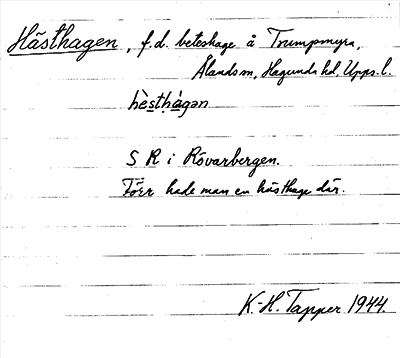 Hästhagen, f.d. beteshage å Trumpmyra,
Ålands m, Hagunda hd, Upps. l.
hὲsthàgan
S R i Rövarbergen.
Förr hade man en hästhage där.
K.-H. Tapper 1944.